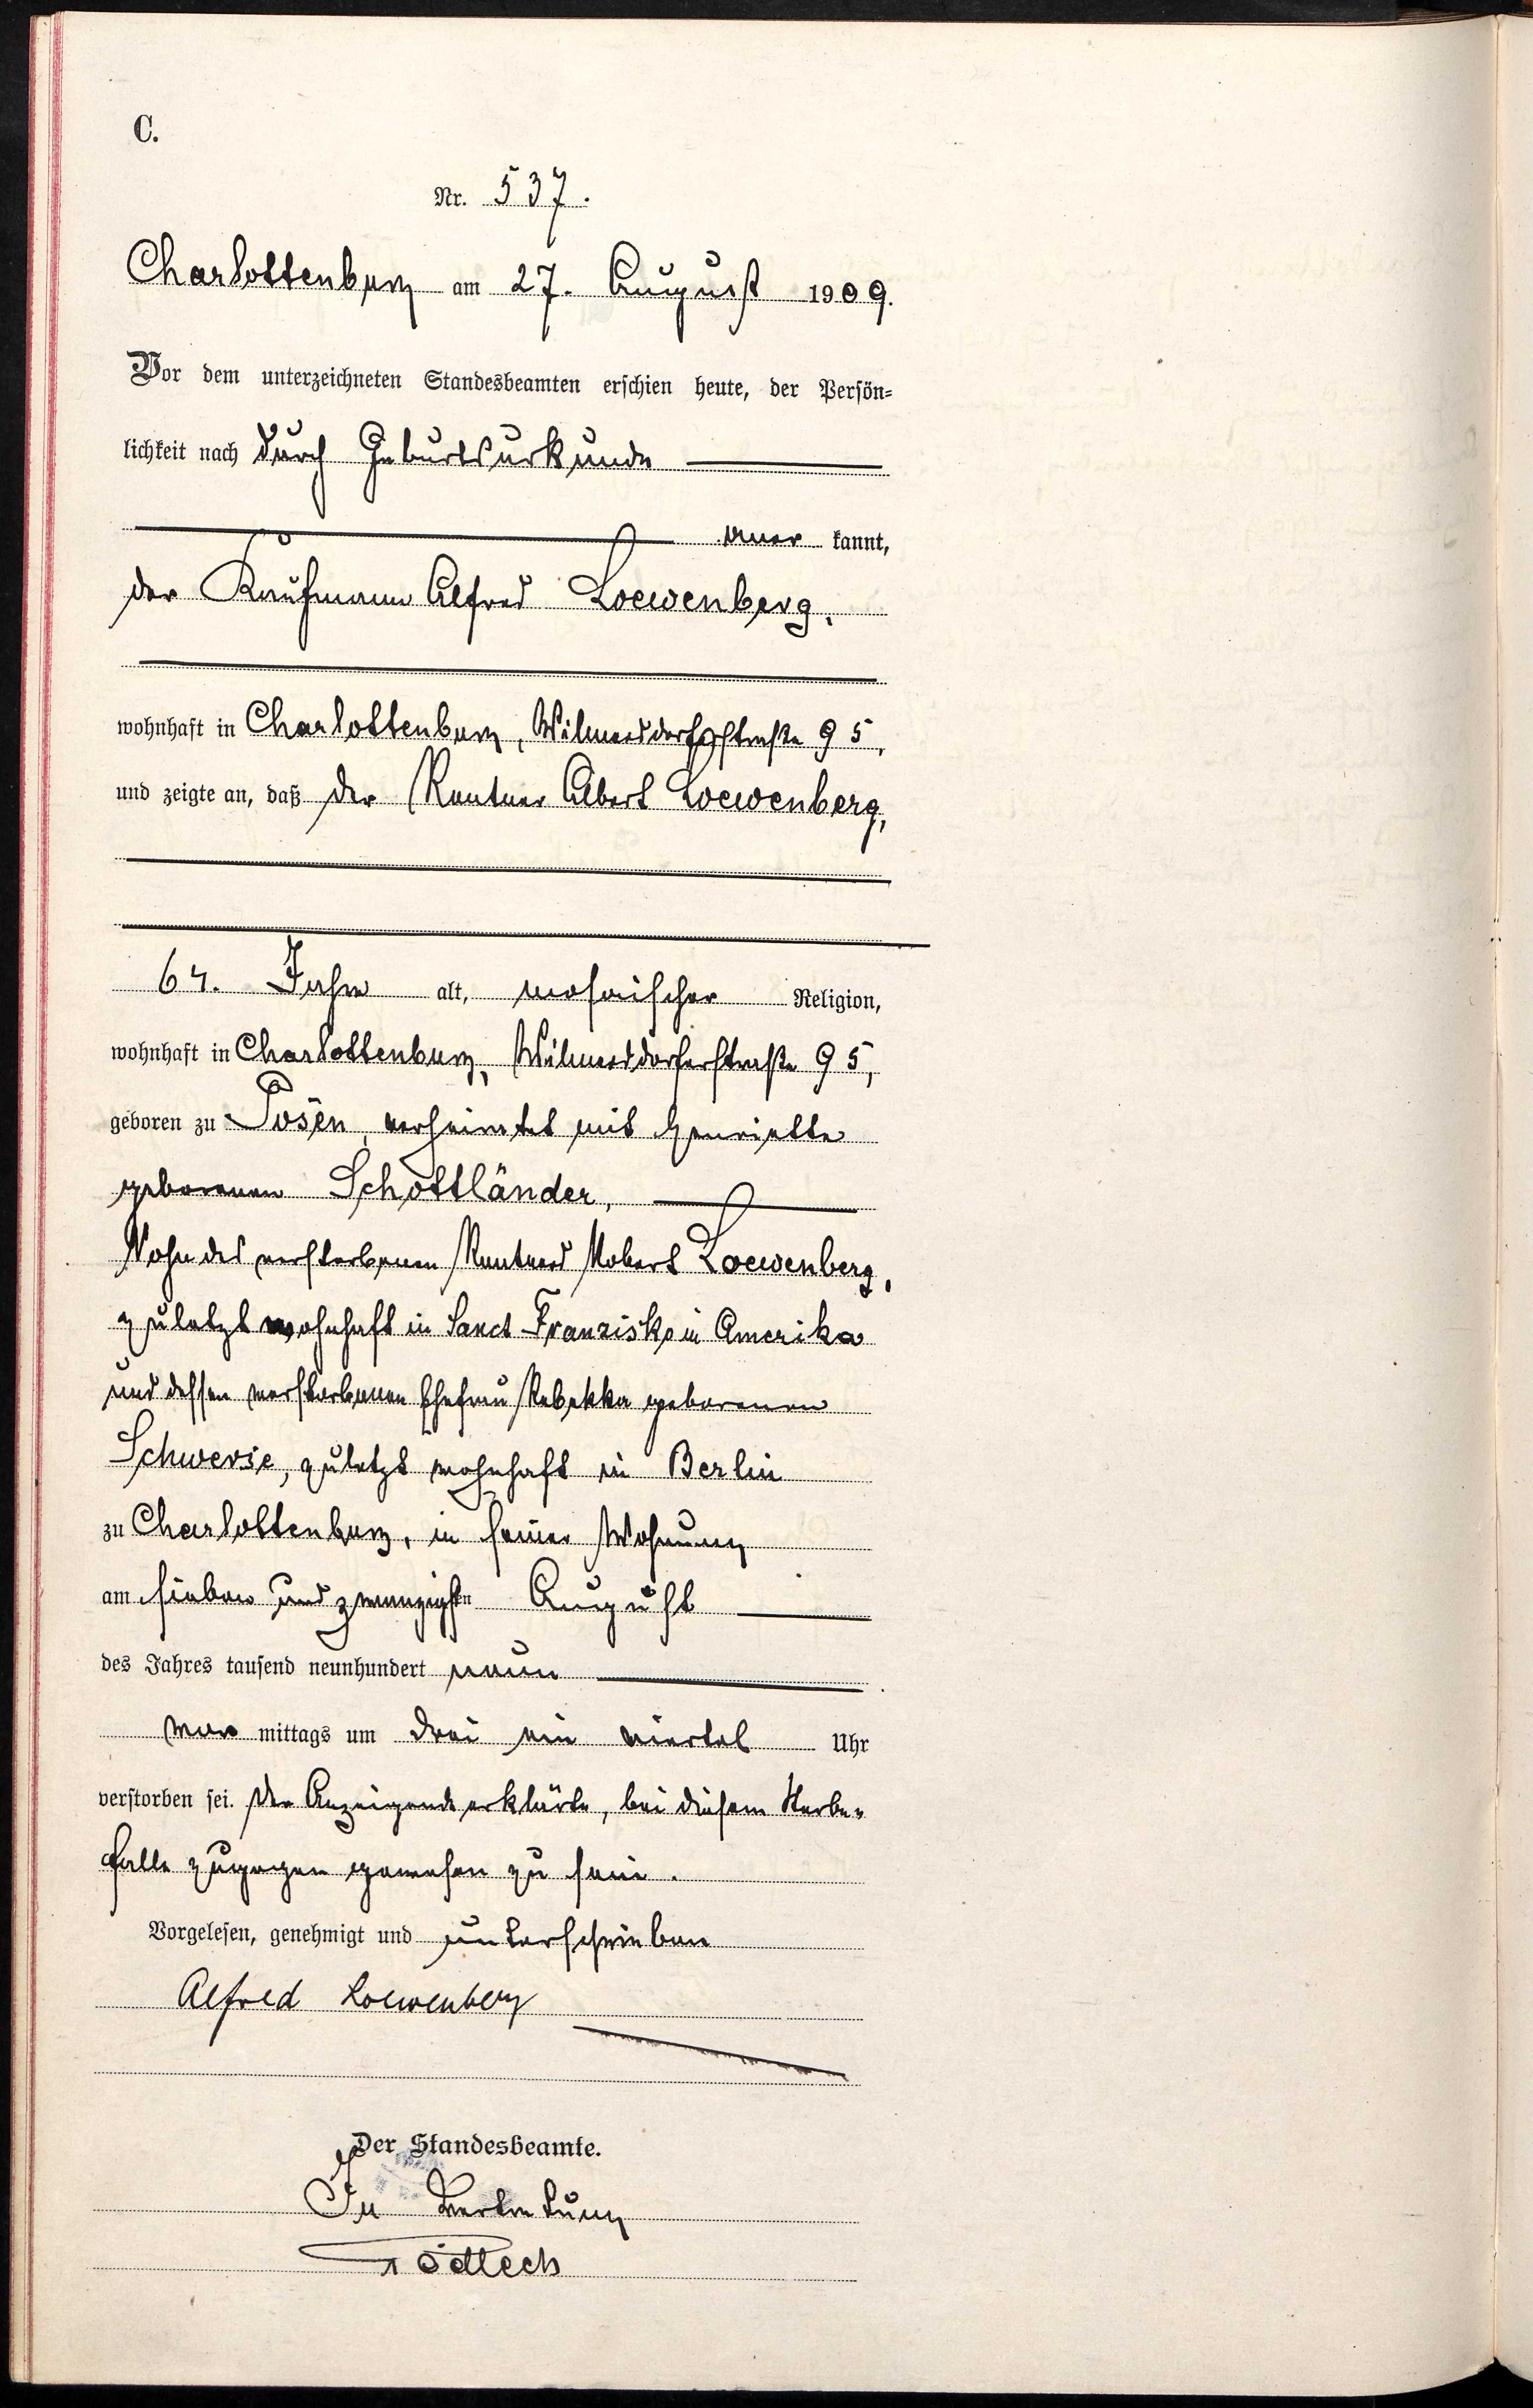 C.
Nr. 537.
Charlottenburg am 27. August 1909.
Vor dem unterzeichneten Standesbeamten erschien heute, der Persön=
lichkeit nach durch Geburtsurkunde
aner kannt,
der Kaufmann Alfred Loewenberg,
wohnhaft in Charlottenburg, Wilmersdorferstraße 95,
und zeigte an, daß der Rentner Albert Loewenberg,
64. Jahre alt, mosaischer Religion,
wohnhaft in Charlottenburg, Wilmersdorferstraße 95,
geboren zu Posen, verheiratet mit Henriette
geborenen Schottländer,
Sohn des verstorbenen Rentners Robert Loewenberg,
zuletzt wohnhaft in Sanct Franzisko in Amerika
und dessen verstorbenen Ehefrau Rebekka geborenen
Schwersie, zuletzt wohnhaft in Berlin
zu Charlottenburg, in seiner Wohnung
am sieben und zwanzigsten August
des Jahres tausend neunhundert neun
vor mittags um drei ein viertel Uhr
verstorben sei. Der Anzeigende erklärte, bei diesem Sterbe-
falle zugegen gewesen zu sein.
Vorgelesen, genehmigt und unterschrieben
Alfred Loewenberg
Der Standesbeamte.
In Vertretung